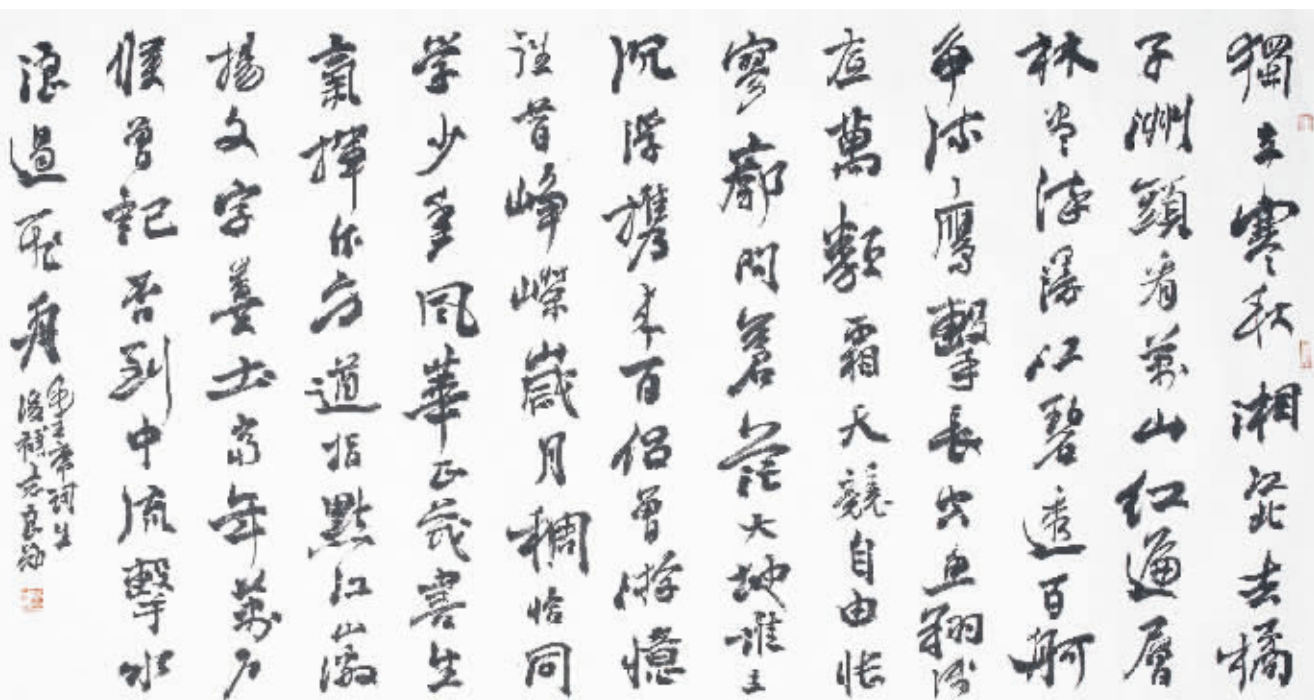 獨立寒秋湘江北去橘
子洲頭看萬山紅遍層
林尽染漫江碧透百舸
争流鷹擊長空魚翔淺
底萬類霜天競自由悵
寥廓問蒼茫大地誰主
沉浮攜来百侣曾游憶
往昔崢嶸歲月稠恰同
学少年風華正茂書生
氣揮斥方遒指點江山激
揚文字糞土當年萬户
侯曾記否到中流擊水
浪遏飛舟
毛主席詞